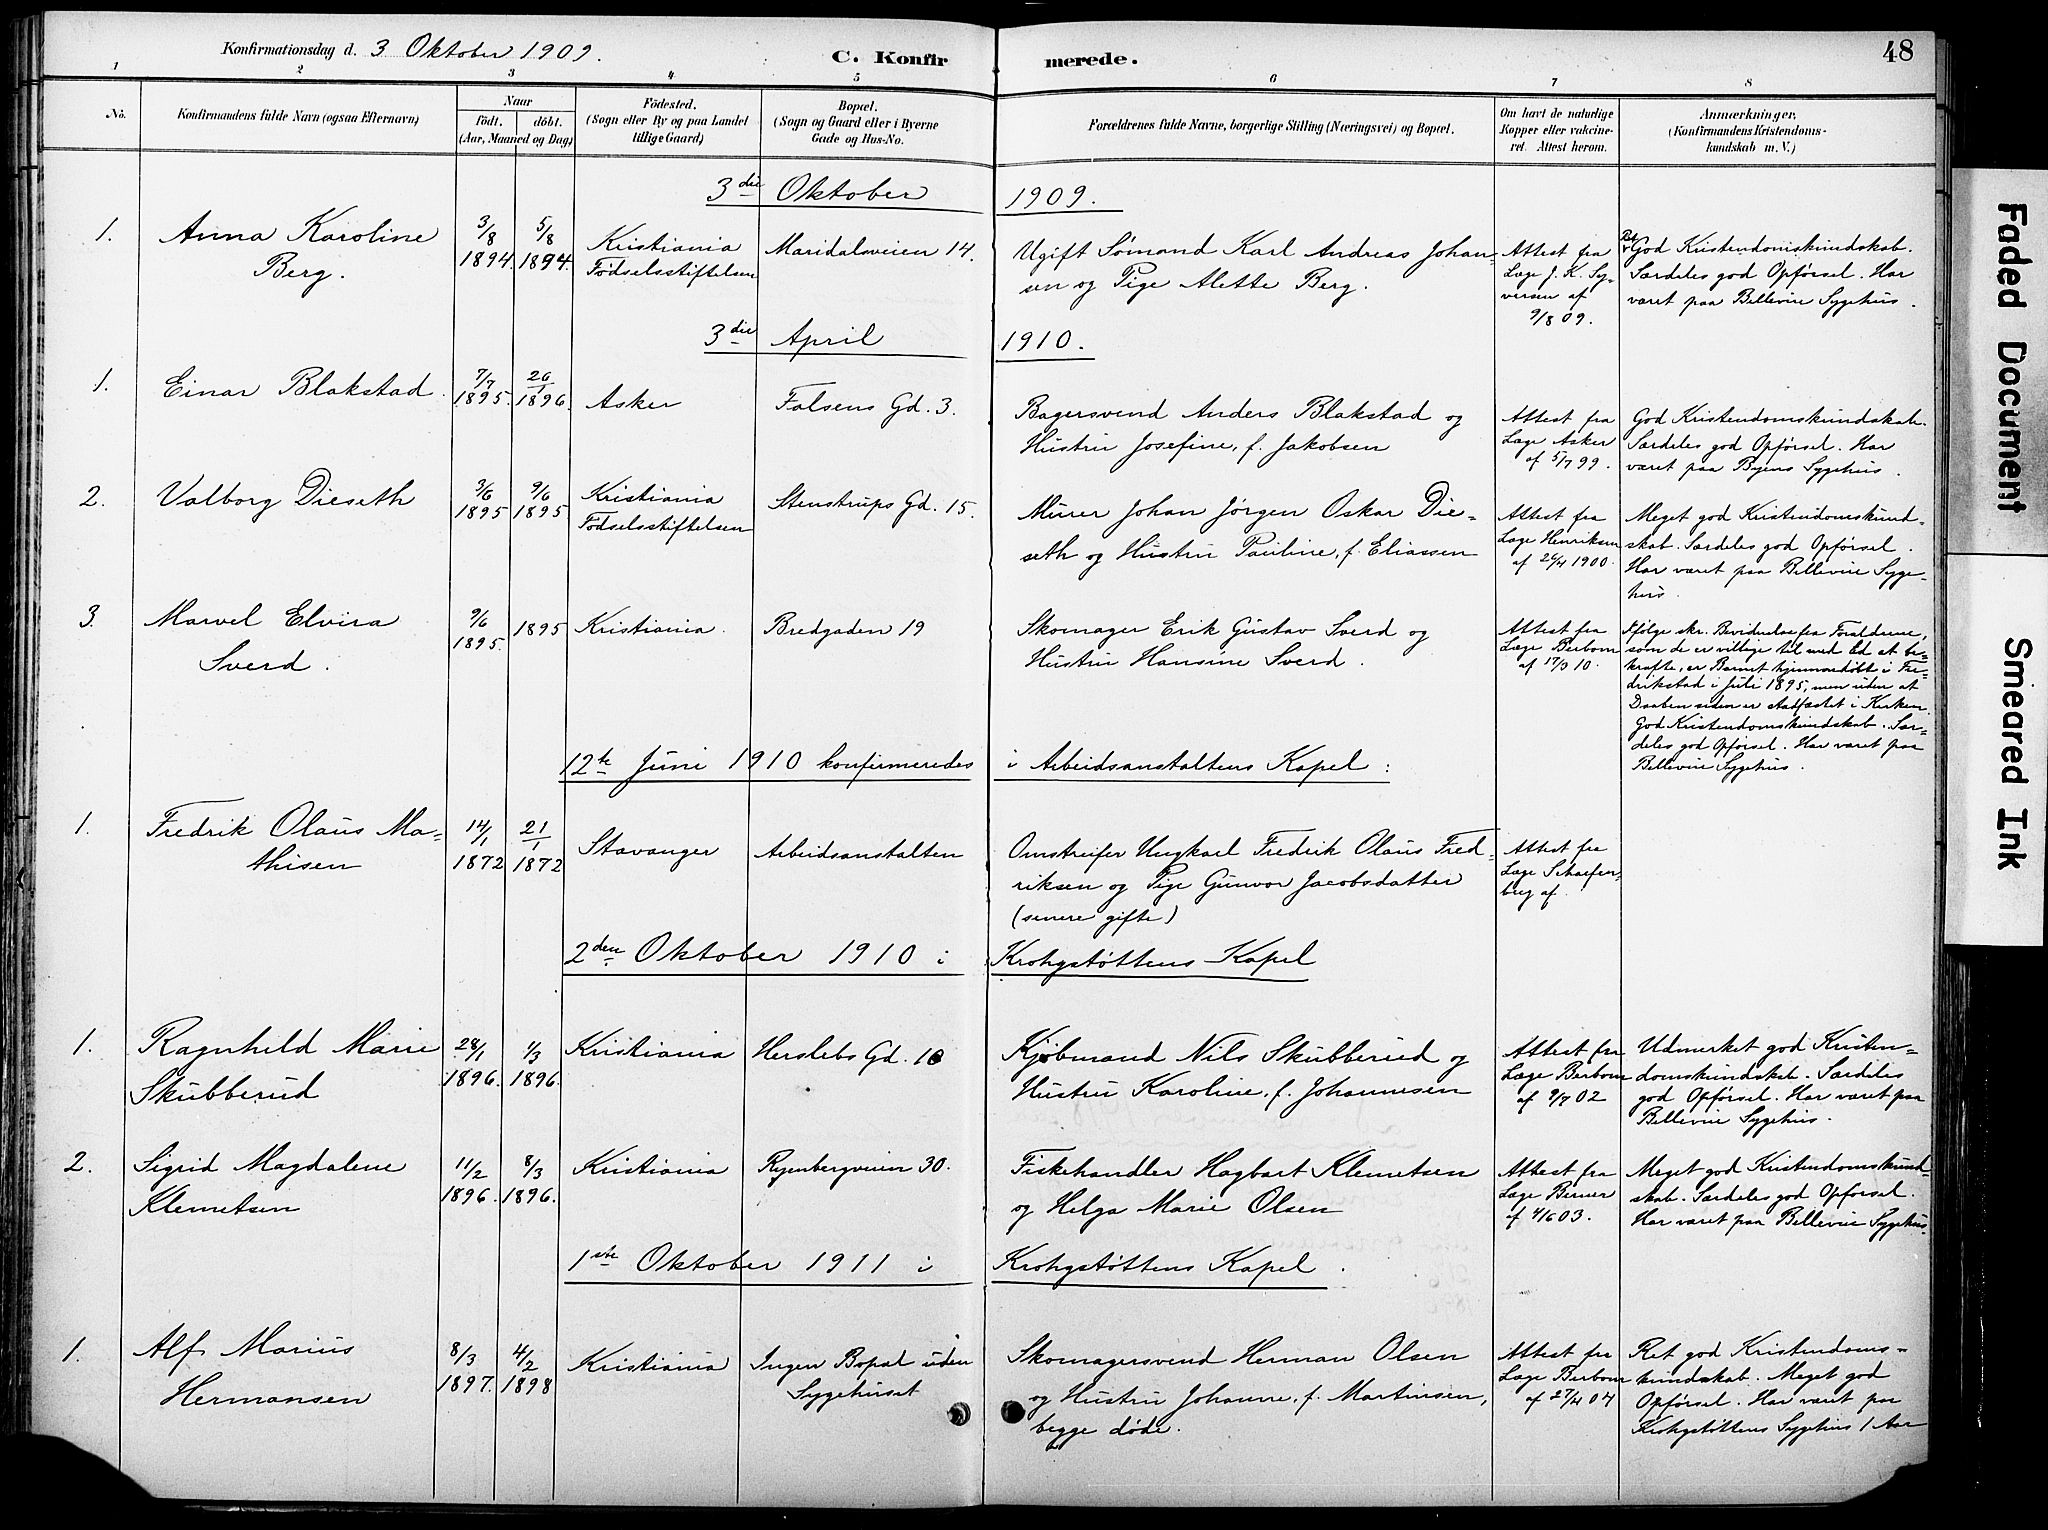 Konfirmationsdag d. 3 Oktober 1909.
C. Konfirmerede.
48
1 2 3 4 5 6 7 8
No.
Konfirmandens fulde Navn (ogsaa Efternavn)
Naar
födt. döbt.
(Aar, Maaned og Dag)
Födested.
(Sogn eller By og paa Landet
tillige Gaard)
Bopæl.
(Sogn og Gaard eller i Byerne
Gade og Hus-No.
Forældrenes fulde Navne, borgerlige Stilling (Næringsvei) og Bopæl.
Om havt de naturlige
Kopper eller vakcine-
ret. Attest herom.
Anmærkninger.
(Konfirmandens Kristendoms-
kundskab m. V.)
3die Oktober 1909.
1.
Anna Karoline
Berg.
3/8
1894.
5/8
1894.
Kristiania
Fødselsstiftelsen
Maridalsveien 14.
Ugift Sømand Karl Andreas Johan-
sen og Pige Alette Berg.
Attest fra
Læge J. K. Sy-
versen af
9/8 09.
Ret
God Kristendomskundskab.
Særdeles god Opførsel. Har
været paa Bellevue Sygehus.
3die April 1910.
1.
Einar Blakstad.
7/7
1895.
26/1
1896.
Asker
Falsens Gd. 3.
Bagersvend Anders Blakstad og
Hustru Josefine, f. Jakobsen
Attest fra
Læge Asker
af 5/7 99.
God Kristendomskundskab.
Særdeles god Opførsel. Har
været paa Byens Sygehus.
2.
Valborg Dieseth
3/6
1895
9/6
1895
Kristiania
Fødselsstiftelsen
Stenstrups Gd. 15.
Murer Johan Jørgen Oskar Die-
seth og Hustru Pauline, f. Eliassen
Attest fra
Læge Henriksen
af 26/4 1900.
Meget god Kristendomskund-
skab. Særdeles god Opførsel.
Har været paa Bellevue Syge-
hus.
3.
Marvel Elvira
Sverd.
9/6
1895.
1895
Kristiania.
Bredgaden 19
Skomager Erik Gustav Sverd og
Hustru Hansine Sverd.
Attest fra
Læge Berbom
af 17/3 10.
Ifølge skr. Bevidnelse fra Forældrene,
som de er villige til med Ed at be-
kræfte, er Barnet hjemmedøbt i Fre-
drikstad i Juli 1895, men uden at
Daaben siden er stadfæstet i Kirken.
God Kristendomskundskab. Sær-
deles god Opførsel. Har været paa
Bellevue Sygehus.
12te Juni 1910 konfirmeredes i Arbeidsanstaltens Kapel:
1.
Fredrik Olaus Ma-
thisen
14/1
1872
21/1
1872
Stavanger
Arbeidsanstalten
Omstreifer Ungkarl Fredrik Olaus Fred-
riksen og Pige Gunvor Jacobsdatter
(senere gifte)
Attest fra
Læge Scharfen-
berg af.
2den Oktober 1910 i Krohgstøttens Kapel
1.
Ragnhild Marie
Skubberud
28/1
1896.
1/3
1896.
Kristiania
Herslebs Gd. 10
Kjøbmand Nils Skubberud og
Hustru Karoline, f. Johannesen
Attest fra
Læge Berbom
af 9/7 02
Udmerket god Kristen-
domskundskab. Særdeles
god Opførsel. Har været paa
Bellevue Sygehus.
2.
Sigrid Magdalene
Klemetsen
11/2
1896.
8/3
1896.
Kristiania
Ryenbergveien 30.
Fiskehandler Hagbart Klemetsen
og Helga Marie Olsen
Attest fra
Læge Berner
af 4/6 03.
Meget god Kristendomskund-
skab. Særdeles god Opførsel.
Har været paa Bellevue Sygehus.
1ste Oktober 1911 i Krohgstøttens Kapel.
1.
Alf Marius
Hermansen
8/3
1897.
4/2
1898
Kristiania
Ingen Bopæl uden
Sygehuset
Skomagersvend Herman Olsen
og Hustru Johanne, f. Martinsen,
begge døde.
Attest fra
Læge Berbom
af 27/4 04
Ret god Kristendoms-
kundskab. Meget god
Opførsel. Har været paa
Krohgstøttens Sygehus 1 Aar
Faded Document
Smeared Ink